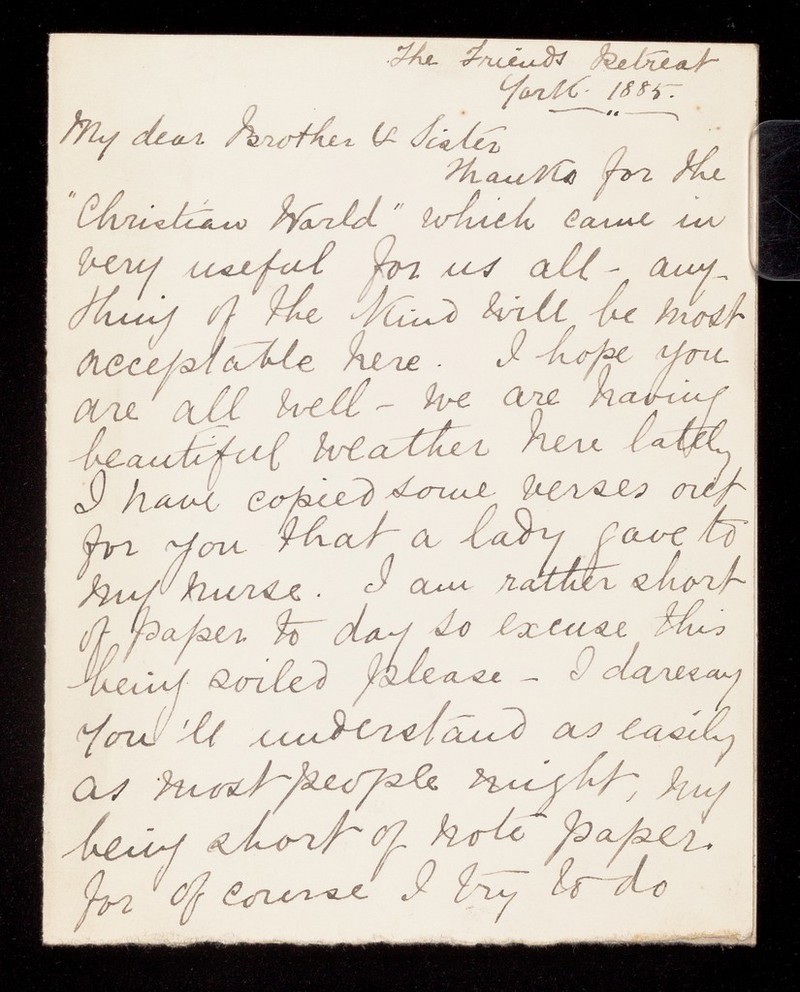 The Friends Retreat
York. 1885.
My dear Brother & Sister
Thanks for the
"Christian World" which came in
very useful for us all - any-
thing of the kind will be most
acceptable here. I hope you
are all well - we are having
beautiful weather here lately
I have copied some verses out
for you that a lady gave to
my nurse. I am rather short
of paper to day so excuse this
being soiled please - I daresay
you'll understand as easily
as most people might, my
being short of note paper.
for of course I try to do